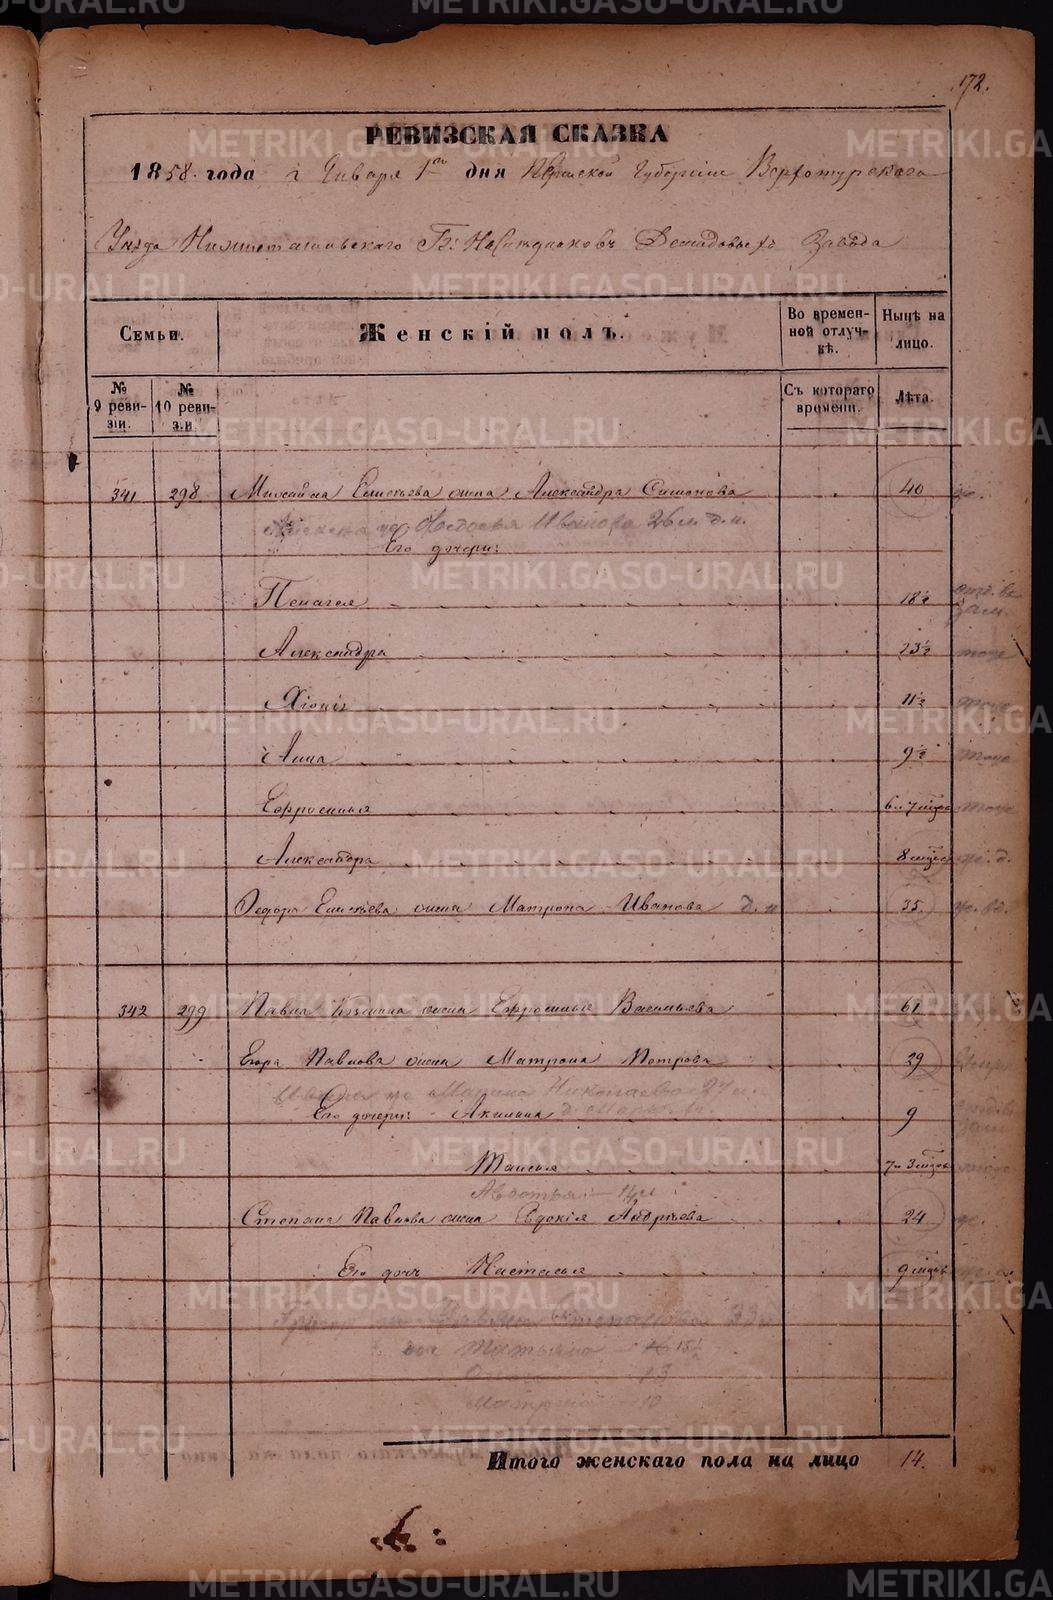 172.
РЕВИЗСКАЯ СКАЗКА
1858. года Января 1го дня Пермской Губернiи Верхотурскаго
Уѣзда Нижнетагильскаго Гг: Наслѣдниковъ Демидовыхъ Завода
Семьи.
Женскiй полъ.
Во времен-
ной отлуч-
кѣ.
Нынѣ на
лицо.
№
9 реви-
зiи.
№
10 реви-
зiи.
Съ котораго
времени.
Лѣта.
341 298 Михайла Елисѣева жена Александра Симонова 40 ж.
же Федосья Иванова 26 л. д. н.
Его дочери:
Пелагея 18½ отд. въ зам.
Александра 13½ тоже
Хiонiя 11½ тоже
Анна 9½ тоже
Ефросинья 6 и 7 мѣся тоже
Александра 8 мѣсяц ж. д.
Федора Елисѣева жена Матрона Иванова д. н 35. ж. вд.
342 299 Павла Козмина жена Ефросинья Васильева 61
Егора Павлова жена Матрона Петрова 29
же Марина Николаева 27 л.
Его дочери: Акилина 9
Таисья 7 и 3 мѣсяц тоже
Авдотья 14 л
Степана Павлова жена Евдокiя Андрѣева 24 ж.
Его дочь Настасья 9 мѣсяц
Степановой 39
Татьяна 15½
13
10
Итого женскаго пола на лицо 14.
METRIKI.GASO-URAL.RU